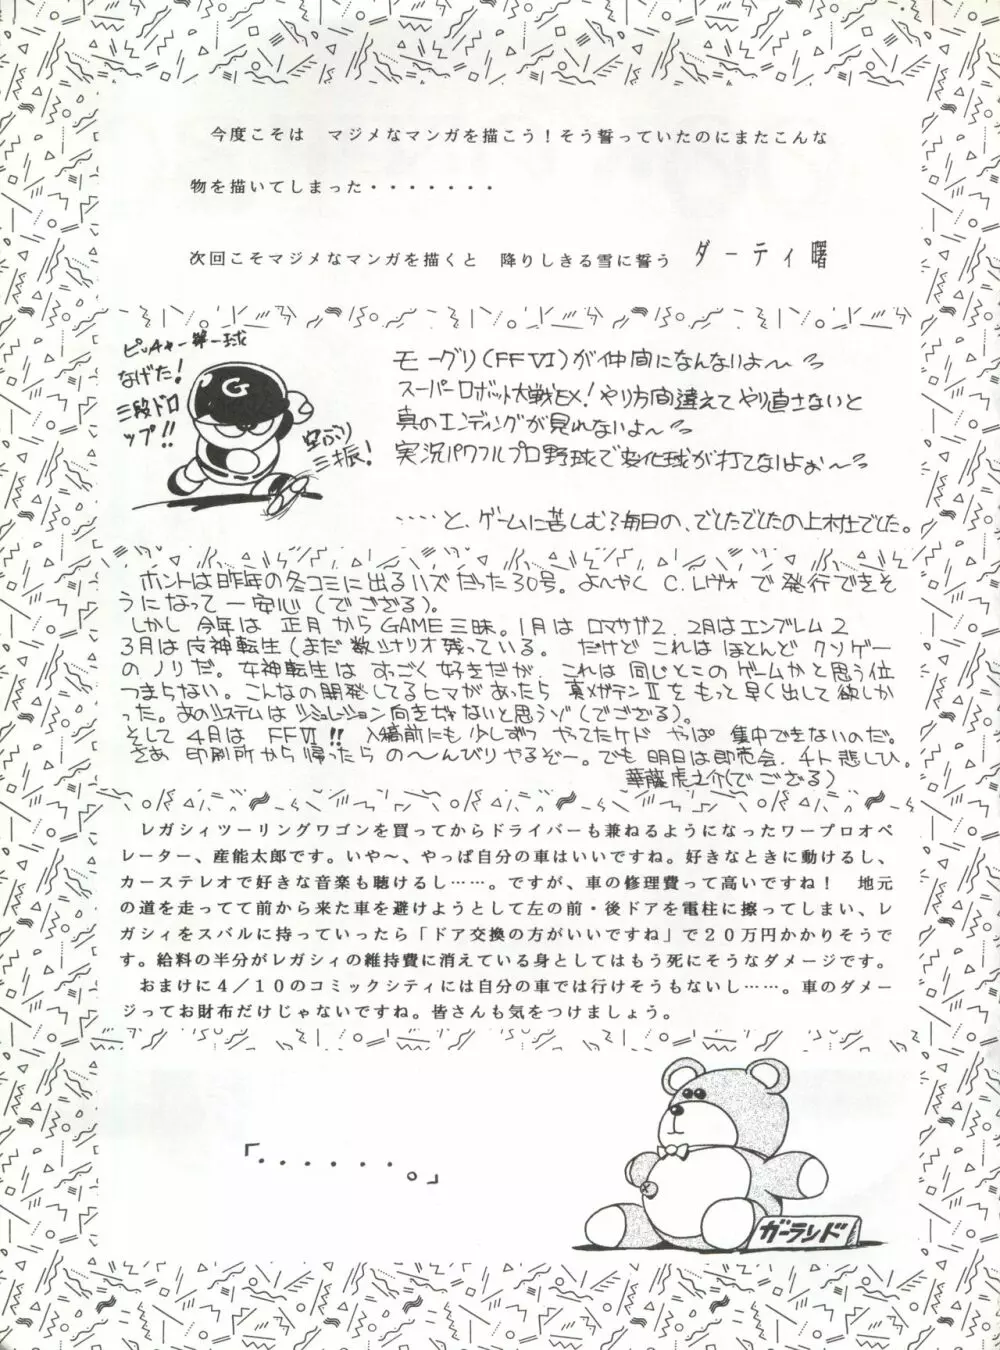 今度こそは　マジメなマンガを描こう！そう誓っていたのにまたこんな
物を描いてしまった・・・・・・・
次回こそマジメなマンガを描くと　降りしきる雪に誓う　ダーティ曙
ピッチャー第一球
なげた！
三段ドロ
ップ!!
G
空ぶり
三振！
モーグリ(FFⅥ)が仲間になんないよ〜
スーパーロボット大戦EX！やり方間違えてやり直さないと
真のエンディングが見れないよ〜
実況パワフルプロ野球で変化球が打てないよぉ〜
‥‥と、ゲームに苦しむ？毎日の、でしたでしたの上村土でした。
ホントは昨年の冬コミに出るハズだった30号。よーやく C.レヴォ で 発行できそ
うになって一安心(でござる)。
しかし 今年は 正月からGAME三昧。1月は ロマサガ2、2月はエンブレム2
3月は女神転生(まだ数シナリオ残っている。 だけど これは ほとんど クソゲー
のノリだ。女神転生は すっごく好きだが、これは 同じとこのゲームかと思う位
つまらない。こんなの開発してるヒマがあったら 真メガテンⅡを もっと早く出して欲しか
った。あのシステムはシミュレーション向きぢゃないと思うゾ(でござる)。
そして 4月は FFⅥ!! 入稿前にも少しずつ やってたケド やっぱ 集中できないのだ。
さあ 印刷所から帰ったら の〜んびりやるぞー。でも 明日は即売会。チト悲しひ。
華藤虎之介(でござる)
レガシィツーリングワゴンを買ってからドライバーも兼ねるようになったワープロオペ
レーター、産能太郎です。いや〜、やっぱ自分の車はいいですね。好きなときに動けるし、
カーステレオで好きな音楽も聴けるし……。ですが、車の修理費って高いですね！　地元
の道を走ってて前から来た車を避けようとして左の前・後ドアを電柱に擦ってしまい、レ
ガシィをスバルに持っていったら「ドア交換の方がいいですね」で２０万円かかりそうで
す。給料の半分がレガシィの維持費に消えている身としてはもう死にそうなダメージです。
おまけに４／１０のコミックシティには自分の車では行けそうもないし……。車のダメー
ジってお財布だけじゃないですね。皆さんも気をつけましょう。
「・・・・・・・。」
ガーランド